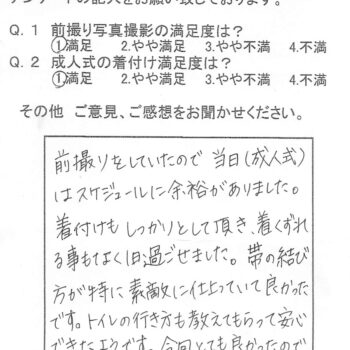 アンケートの記入をお願い致しております。
Q.1 前撮り写真撮影の満足度は?
①満足 2.やや満足 3.やや不満 4.不満
Q.2 成人式の着付け満足度は?
①満足 2.やや満足 3.やや不満 4.不満
その他 ご意見、ご感想をお聞かせください。
前撮りをしていたので 当日(成人式)
はスケジュールに余裕がありました。
着付けも しっかりとして頂き、着くずれ
る事もなく1日過ごせました。帯の結び
方が特に 素敵に仕上っていて良かった
です。トイレの行き方も教えてもらって安心
できたようです。今回とても良かったので